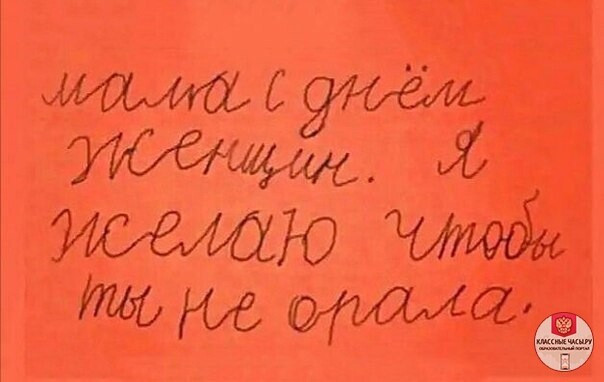 мама с днём
женщин. Я
желаю чтобы
ты не орала.
КЛАССНЫЕ ЧАСЫ.РУ
ОБРАЗОВАТЕЛЬНЫЙ ПОРТАЛ